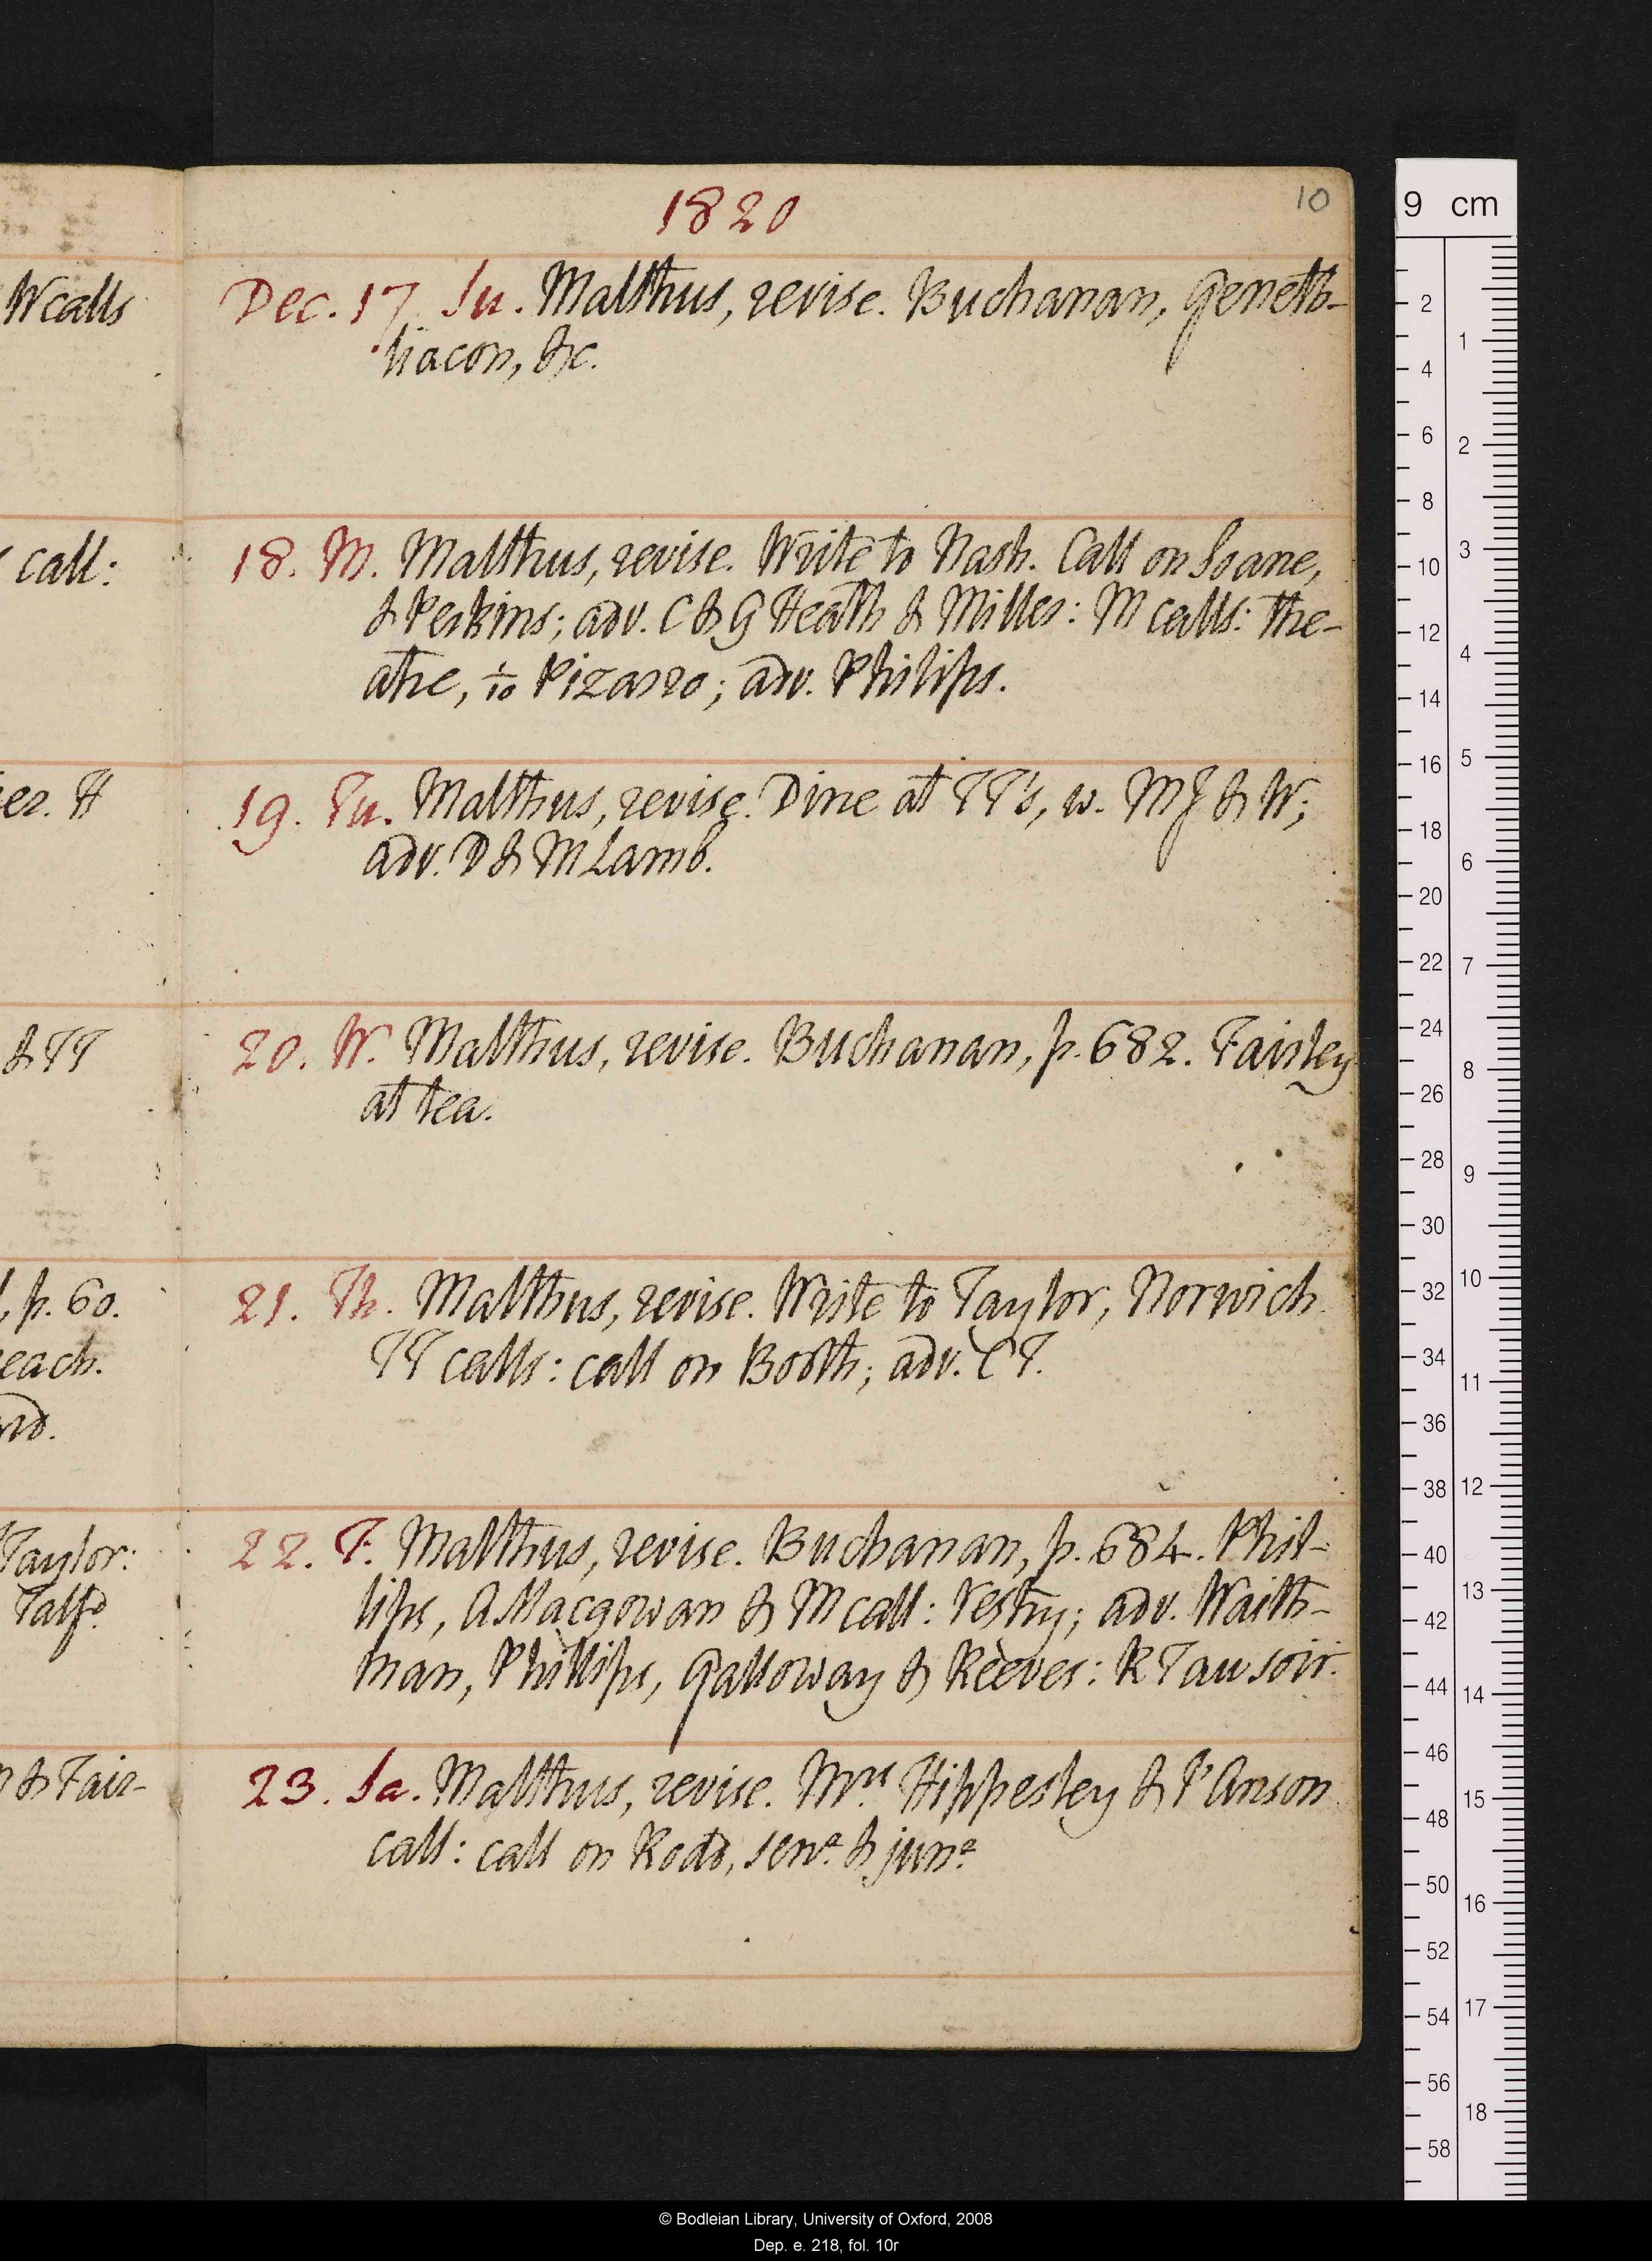 1820
10
W calls
Dec. 17. Su. Malthus, revise. Buchanan, Geneth-
liacon, &c.
call:
18. M. Malthus, revise. Write to Nash. Call on Soane,
& Perkins; adv. C & G Heath & Milles: M calls: the-
atre, 1/10 Pizarro; adv. Philips.
er. H
19. Tu. Malthus, revise. Dine at TT's, w. MJ & W;
adv. D & M Lamb.
& TT
20. W. Malthus, revise. Buchanan, p. 682. Fairley
at tea.
, p. 60.
each.
21. Th. Malthus, revise. Write to Taylor, Norwich.
TT calls: call on Booth; adv. CT.
Taylor:
Talfd
22. F. Malthus, revise. Buchanan, p. 684. Phil-
lips, A Macgowan & M call: Vestry; adv. Waith-
man, Phillips, Galloway & Reeves: R T au soir.
& Fair-
23. Sa. Malthus, revise. Mrs Hippesley & I'Anson
call: call on Rodd, senr. & junr.
9 cm
2
4
6
8
10
12
14
16
18
20
22
24
26
28
30
32
34
36
38
40
42
44
46
48
50
52
54
56
58
1
2
3
4
5
6
7
8
9
10
11
12
13
14
15
16
17
18
© Bodleian Library, University of Oxford, 2008
Dep. e. 218, fol. 10r